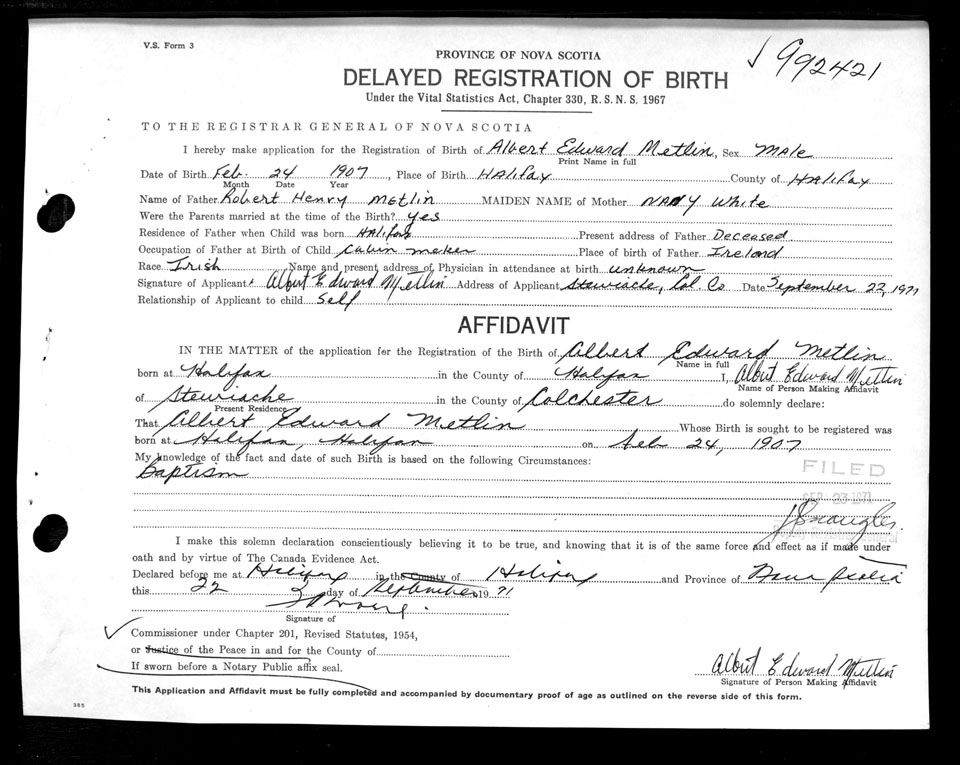 V.S. Form 3
PROVINCE OF NOVA SCOTIA
992421
DELAYED REGISTRATION OF BIRTH
Under the Vital Statistics Act, Chapter 330, R.S.N.S. 1967
TO THE REGISTRAR GENERAL OF NOVA SCOTIA
I hereby make application for the Registration of Birth of Albert Edward Metlin, Sex MALE
Print Name in full
Date of Birth Feb. 24 1907, Place of Birth HALifax County of HALifax
Month Date Year
Name of Father Robert Henry Metlin MAIDEN NAME of Mother White
Were the Parents married at the time of the Birth? yes
Residence of Father when Child was born HALifax Present address of Father Deceased
Occupation of Father at Birth of Child Cabin meker Place of birth of Father Ireland
Race Irish Name and present address of Physician in attendance at birth unknown
Signature of Applicant Albert Edward Metlin Address of Applicant Stewiacke, Col. Co. Date September 22, 1971
Relationship of Applicant to child Self
AFFIDAVIT
IN THE MATTER of the application for the Registration of the Birth of Albert Edward Metlin
Name in full
born at Halifax in the County of Halifax I, Albert Edward Metlin
Name of Person Making Affidavit
of Stewiacke in the County of Colchester do solemnly declare:
Present Residence
That Albert Edward Metlin Whose Birth is sought to be registered was
born at Halifax, Halifax on Feb 24, 1907
My knowledge of the fact and date of such Birth is based on the following Circumstances:
Baptism
FILED
SEP 23 1971
I make this solemn declaration conscientiously believing it to be true, and knowing that it is of the same force and effect as if made under
oath and by virtue of The Canada Evidence Act.
Declared before me at Halifax in the County of Halifax and Province of Nova Scotia
this 22 day of September 1971
Signature of
Commissioner under Chapter 201, Revised Statutes, 1954,
or Justice of the Peace in and for the County of
If sworn before a Notary Public affix seal.
Albert Edward Metlin
Signature of Person Making Affidavit
This Application and Affidavit must be fully completed and accompanied by documentary proof of age as outlined on the reverse side of this form.
385